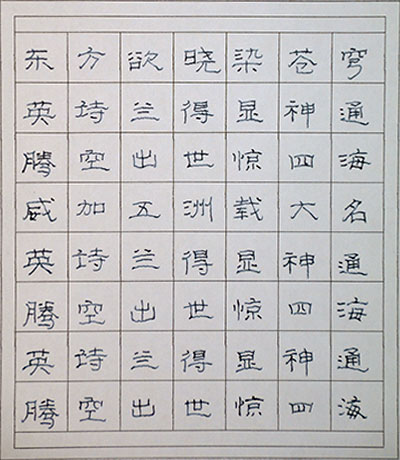 东方欲晓染苍穹
英诗兰得显神通
腾空出世惊四海
威加五洲载大名
英诗兰得显神通
腾空出世惊四海
英诗兰得显神通
腾空出世惊四海